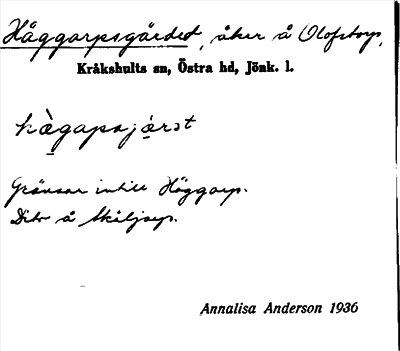 Häggarpsgärdet, åker å Olofstorp,
Kråkshults sn, Östra hd, Jönk. l.
hàgapsjǝrst
Gränsar intill Häggarp.
Dito å Skäljarp.
Annalisa Anderson 1936